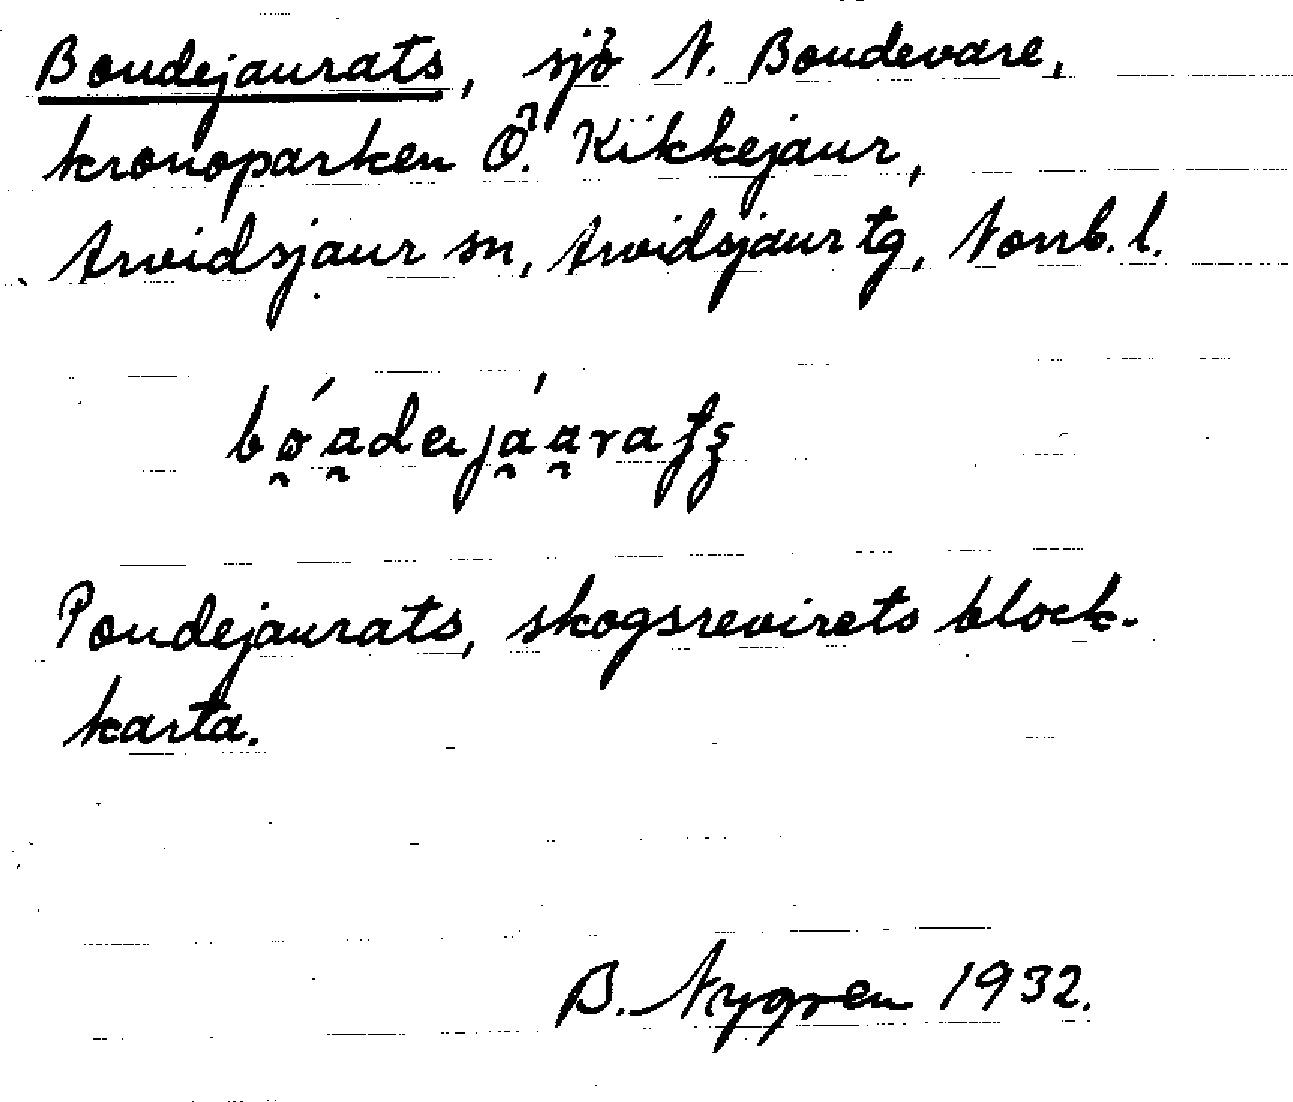 Boudejaurats, sjö N. Boudevare,
kronoparken Ö. Kikkejaur,
Arvidsjaur sn, Arvidsjaur tg, Norrb. l.
bo̯óa̯dejáa̯rats
Poudejaurats, skogsrevirets block-
karta.
B. Nygren 1932.